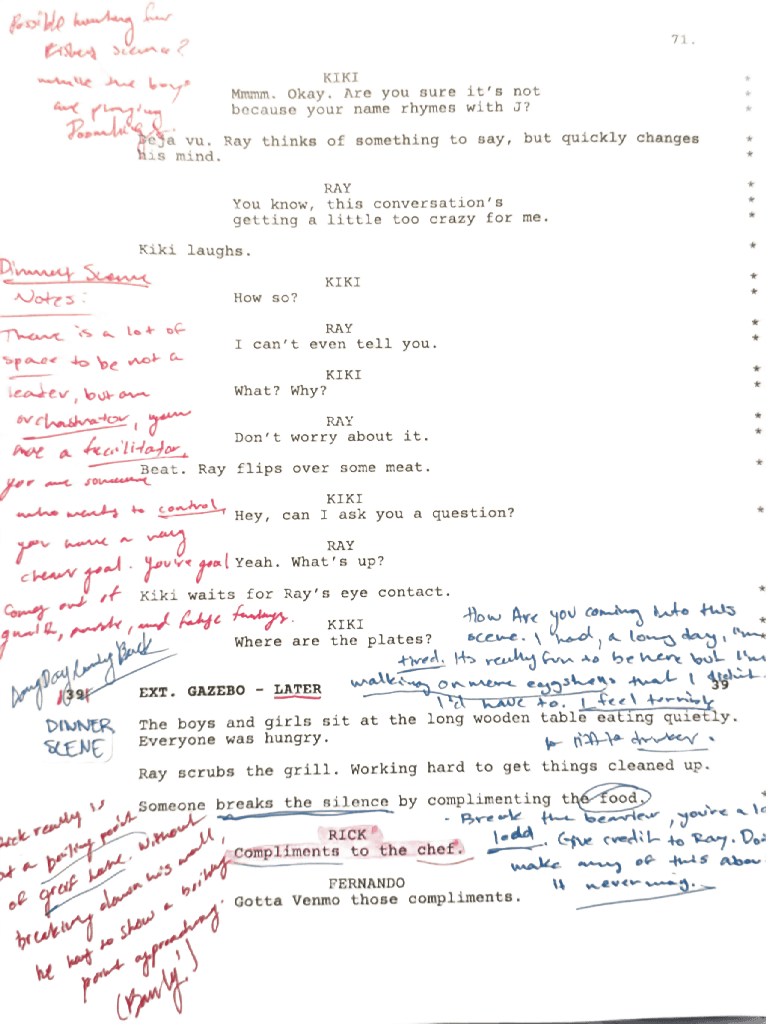 Possible
scene?
while the boys
are playing
71.
KIKI
Mmmm. Okay. Are you sure it's not
because your name rhymes with J?
Deja vu. Ray thinks of something to say, but quickly changes
his mind.
RAY
You know, this conversation's
getting a little too crazy for me.
Kiki laughs.
Dinner Scene
Notes:
KIKI
How so?
There is a lot of
space to be not a
leader, but an
orchastrator, your
more a facilitator,
you are someone
who wants to control,
you have a very
clear goal. You're goal
comes out of
RAY
I can't even tell you.
KIKI
What? Why?
RAY
Don't worry about it.
Beat. Ray flips over some meat.
KIKI
Hey, can I ask you a question?
RAY
Yeah. What's up?
Kiki waits for Ray's eye contact.
KIKI
Where are the plates?
How Are you coming into this
scene. I had, a long day, I'm
tired. Its really fun to be here but I'm
walking on more eggshells that I didn't
I'd have to. I feel terrible
Long Day Coming Back
39 EXT. GAZEBO - LATER 39
DINNER
SCENE
The boys and girls sit at the long wooden table eating quietly.
Everyone was hungry.
Ray scrubs the grill. Working hard to get things cleaned up.
Someone breaks the silence by complimenting the food.
- Break the barrier, you're a
Give credit to Ray. Don't
make any of this about
Rick really is
at a boiling point
of great hate. Without
breaking down his wall,
he has to show a boiling
point approaching.
RICK
Compliments to the chef.
FERNANDO
Gotta Venmo those compliments.